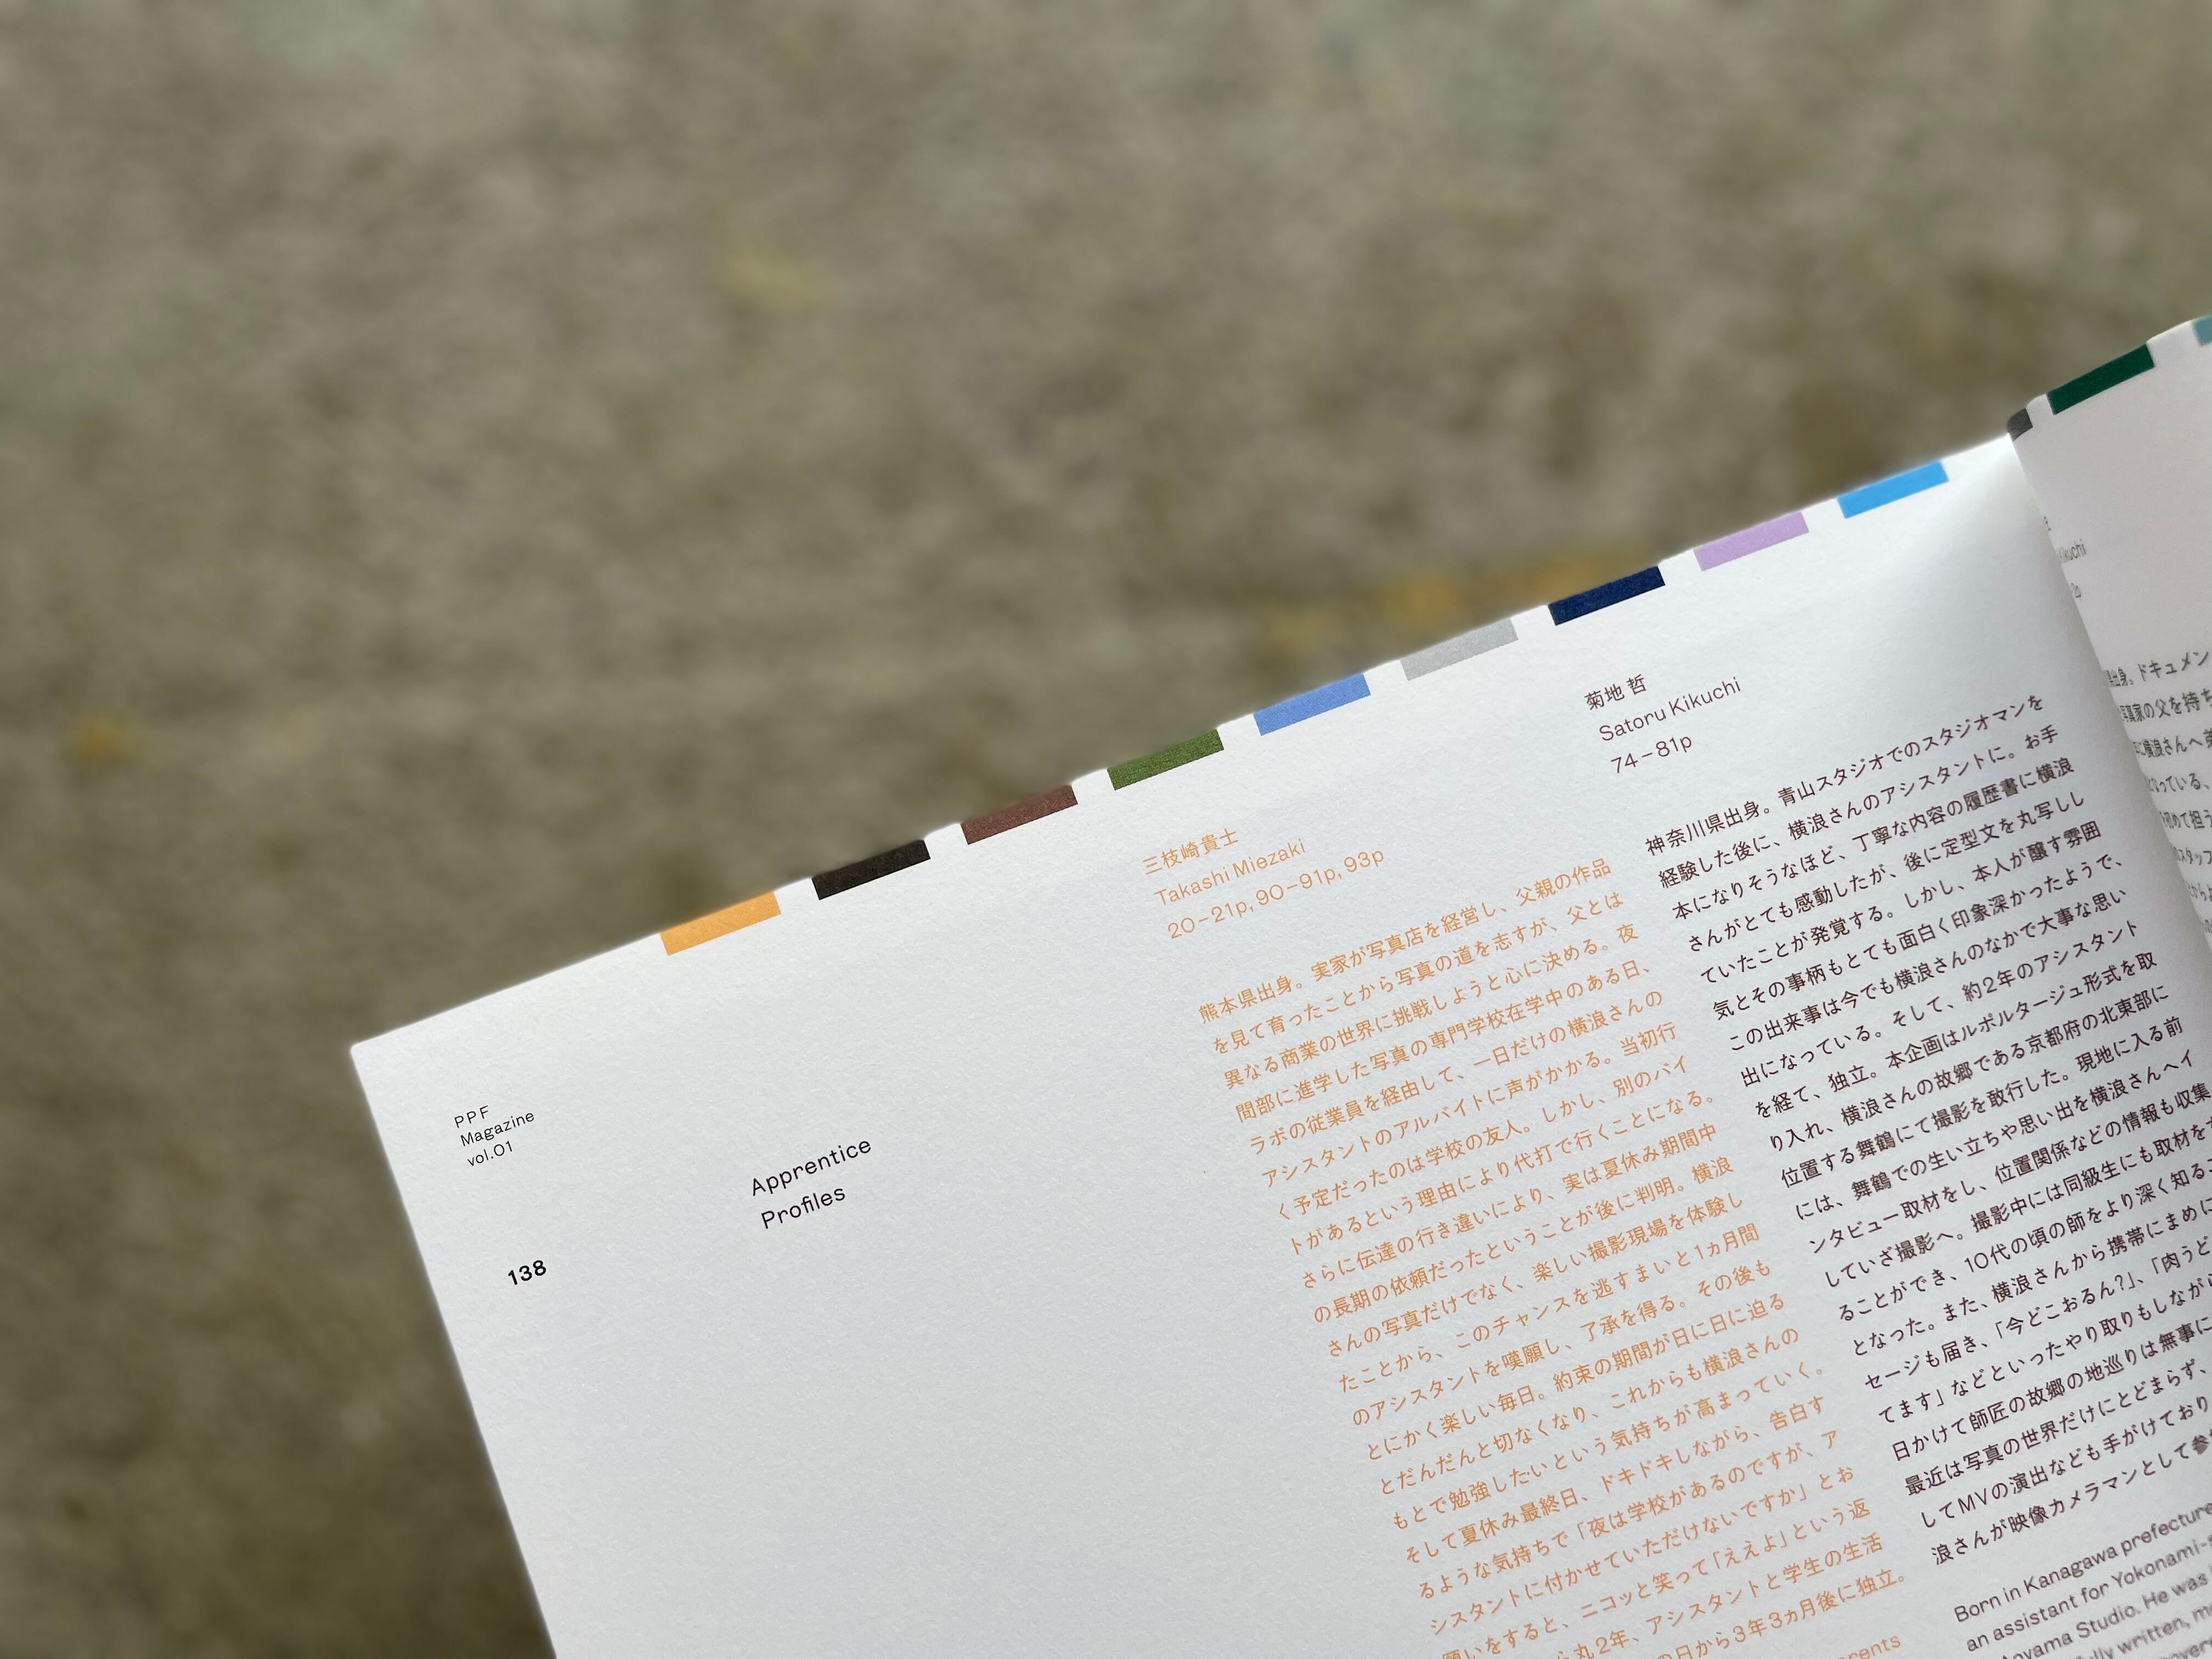 PPF
Magazine
vol.01
138
Apprentice
Profiles
三枝崎貴士
Takashi Miezaki
20–21p, 90–91p, 93p
熊本県出身。実家が写真店を経営し、父親の作品
を見て育ったことから写真の道を志すが、父とは
異なる商業の世界に挑戦しようと心に決める。夜
間部に進学した写真の専門学校在学中のある日、
ラボの従業員を経由して、一日だけの横浪さんの
アシスタントのアルバイトに声がかかる。当初行
く予定だったのは学校の友人。しかし、別のバイ
トがあるという理由により代打で行くことになる。
さらに伝達の行き違いにより、実は夏休み期間中
の長期の依頼だったということが後に判明。横浪
さんの写真だけでなく、楽しい撮影現場を体験し
たことから、このチャンスを逃すまいと1ヵ月間
のアシスタントを嘆願し、了承を得る。その後も
とにかく楽しい毎日。約束の期間が日に日に迫る
とだんだんと切なくなり、これからも横浪さんの
もとで勉強したいという気持ちが高まっていく。
そして夏休み最終日、ドキドキしながら、告白す
るような気持ちで「夜は学校があるのですが、ア
シスタントに付かせていただけないですか」とお
願いをすると、ニコッと笑って「ええよ」という返
丸2年、アシスタントと学生の生活
の日から3年3ヵ月後に独立。
菊地 哲
Satoru Kikuchi
74–81p
神奈川県出身。青山スタジオでのスタジオマンを
経験した後に、横浪さんのアシスタントに。お手
本になりそうなほど、丁寧な内容の履歴書に横浪
さんがとても感動したが、後に定型文を丸写しし
ていたことが発覚する。しかし、本人が醸す雰囲
気とその事柄もとても面白く印象深かったようで、
この出来事は今でも横浪さんのなかで大事な思い
出になっている。そして、約2年のアシスタント
を経て、独立。本企画はルポルタージュ形式を取
り入れ、横浪さんの故郷である京都府の北東部に
位置する舞鶴にて撮影を敢行した。現地に入る前
には、舞鶴での生い立ちや思い出を横浪さんへイ
ンタビュー取材をし、位置関係などの情報も収集
していざ撮影へ。撮影中には同級生にも取材をす
ることができ、10代の頃の師をより深く知るこ
となった。また、横浪さんから携帯にまめに
セージも届き、「今どこおるん?」、「肉うど
てます」などといったやり取りもしながら
日かけて師匠の故郷の地巡りは無事に
最近は写真の世界だけにとどまらず、
してMVの演出なども手がけており
浪さんが映像カメラマンとして参
Born in Kanagawa prefecture
an assistant for Yokonami-s
Aoyama Studio. He was